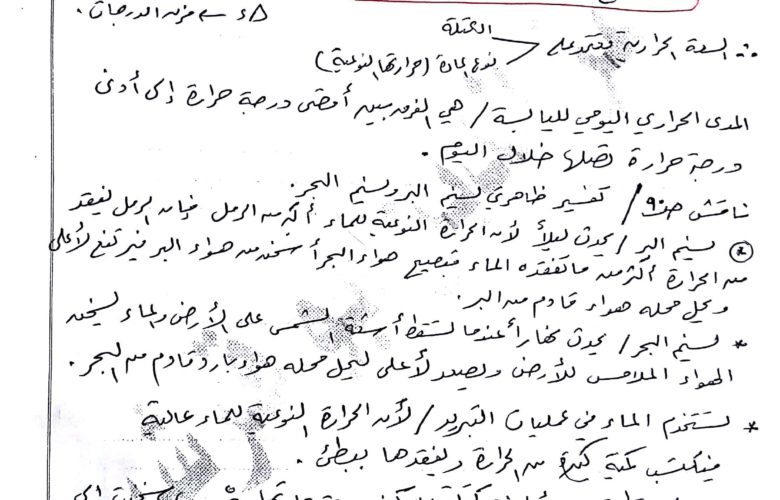 Δد ← فرق الدرجات .
∴ السعة الحرارية تعتمد على
الكتلة
نوع المادة (حرارتها النوعية)
المدى الحراري اليومي لليابسة / هي الفرق بين أقصى درجة حرارة إلى أدنى
درجة حرارة تصلها خلال اليوم .
ناقش ص٩٠ / تفسير ظاهرتي نسيم البر ونسيم البحر .
* نسيم البر / يحدث ليلاً لأن الحرارة النوعية للماء أكبر من الرمل فإن الرمل يفقد
من الحرارة أكثر من ما تفقده الماء فتصبح هواء البحر أسخن من هواء البر فيرتفع لأعلى
ويحل محله هواء قادم من البر .
* نسيم البحر / يحدث نهاراً عندما تسقط أشعة الشمس على الأرض والماء يسخن
الهواء الملامس للأرض ويصعد لأعلى ليحل محله هواء بارد قادم من البحر .
* تستخدم الماء في عمليات التبريد / لأن الحرارة النوعية للماء عالية
فيكتسب كمية كبيرة من الحرارة ويفقدها ببطئ .